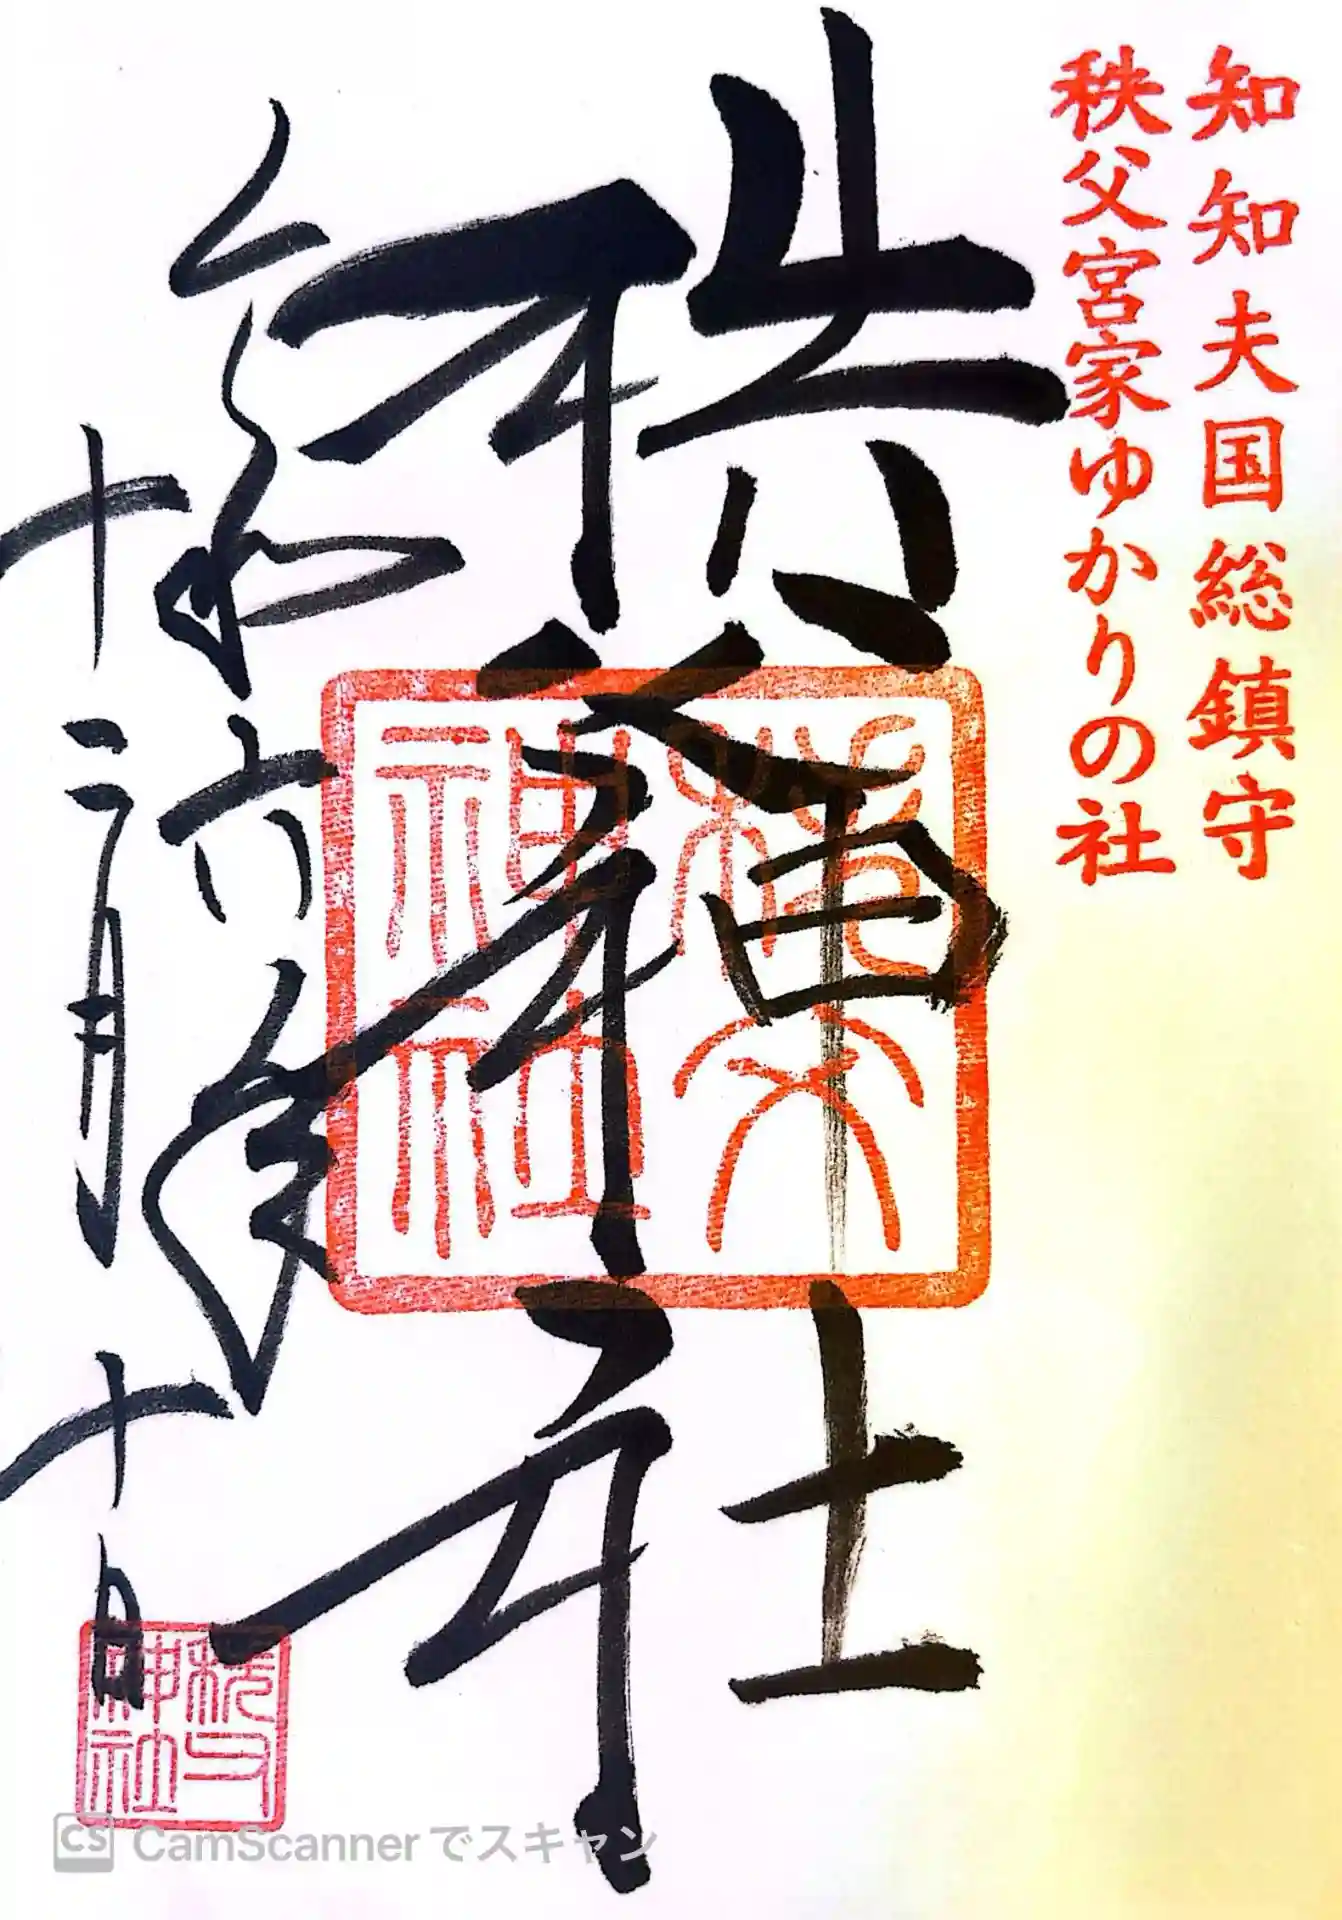 知知夫国総鎮守
秩父宮家ゆかりの社
秩父神社
令和六年
十二月十日
秩父
神社
秩父
神社
CS CamScannerでスキャン